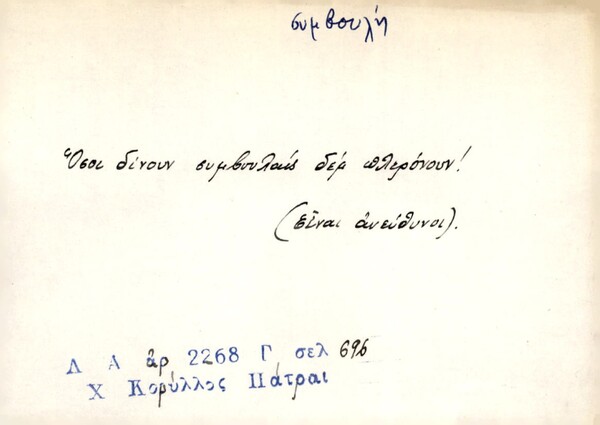 συμβουλή
Ὅσοι δίνουν συμβουλαίς δέμ πλερόνουν!
(εἶναι ἀνεύθυνοι).
Λ Α ἀρ 2268 Γ σελ 696
Χ Κορύλλος Πάτραι